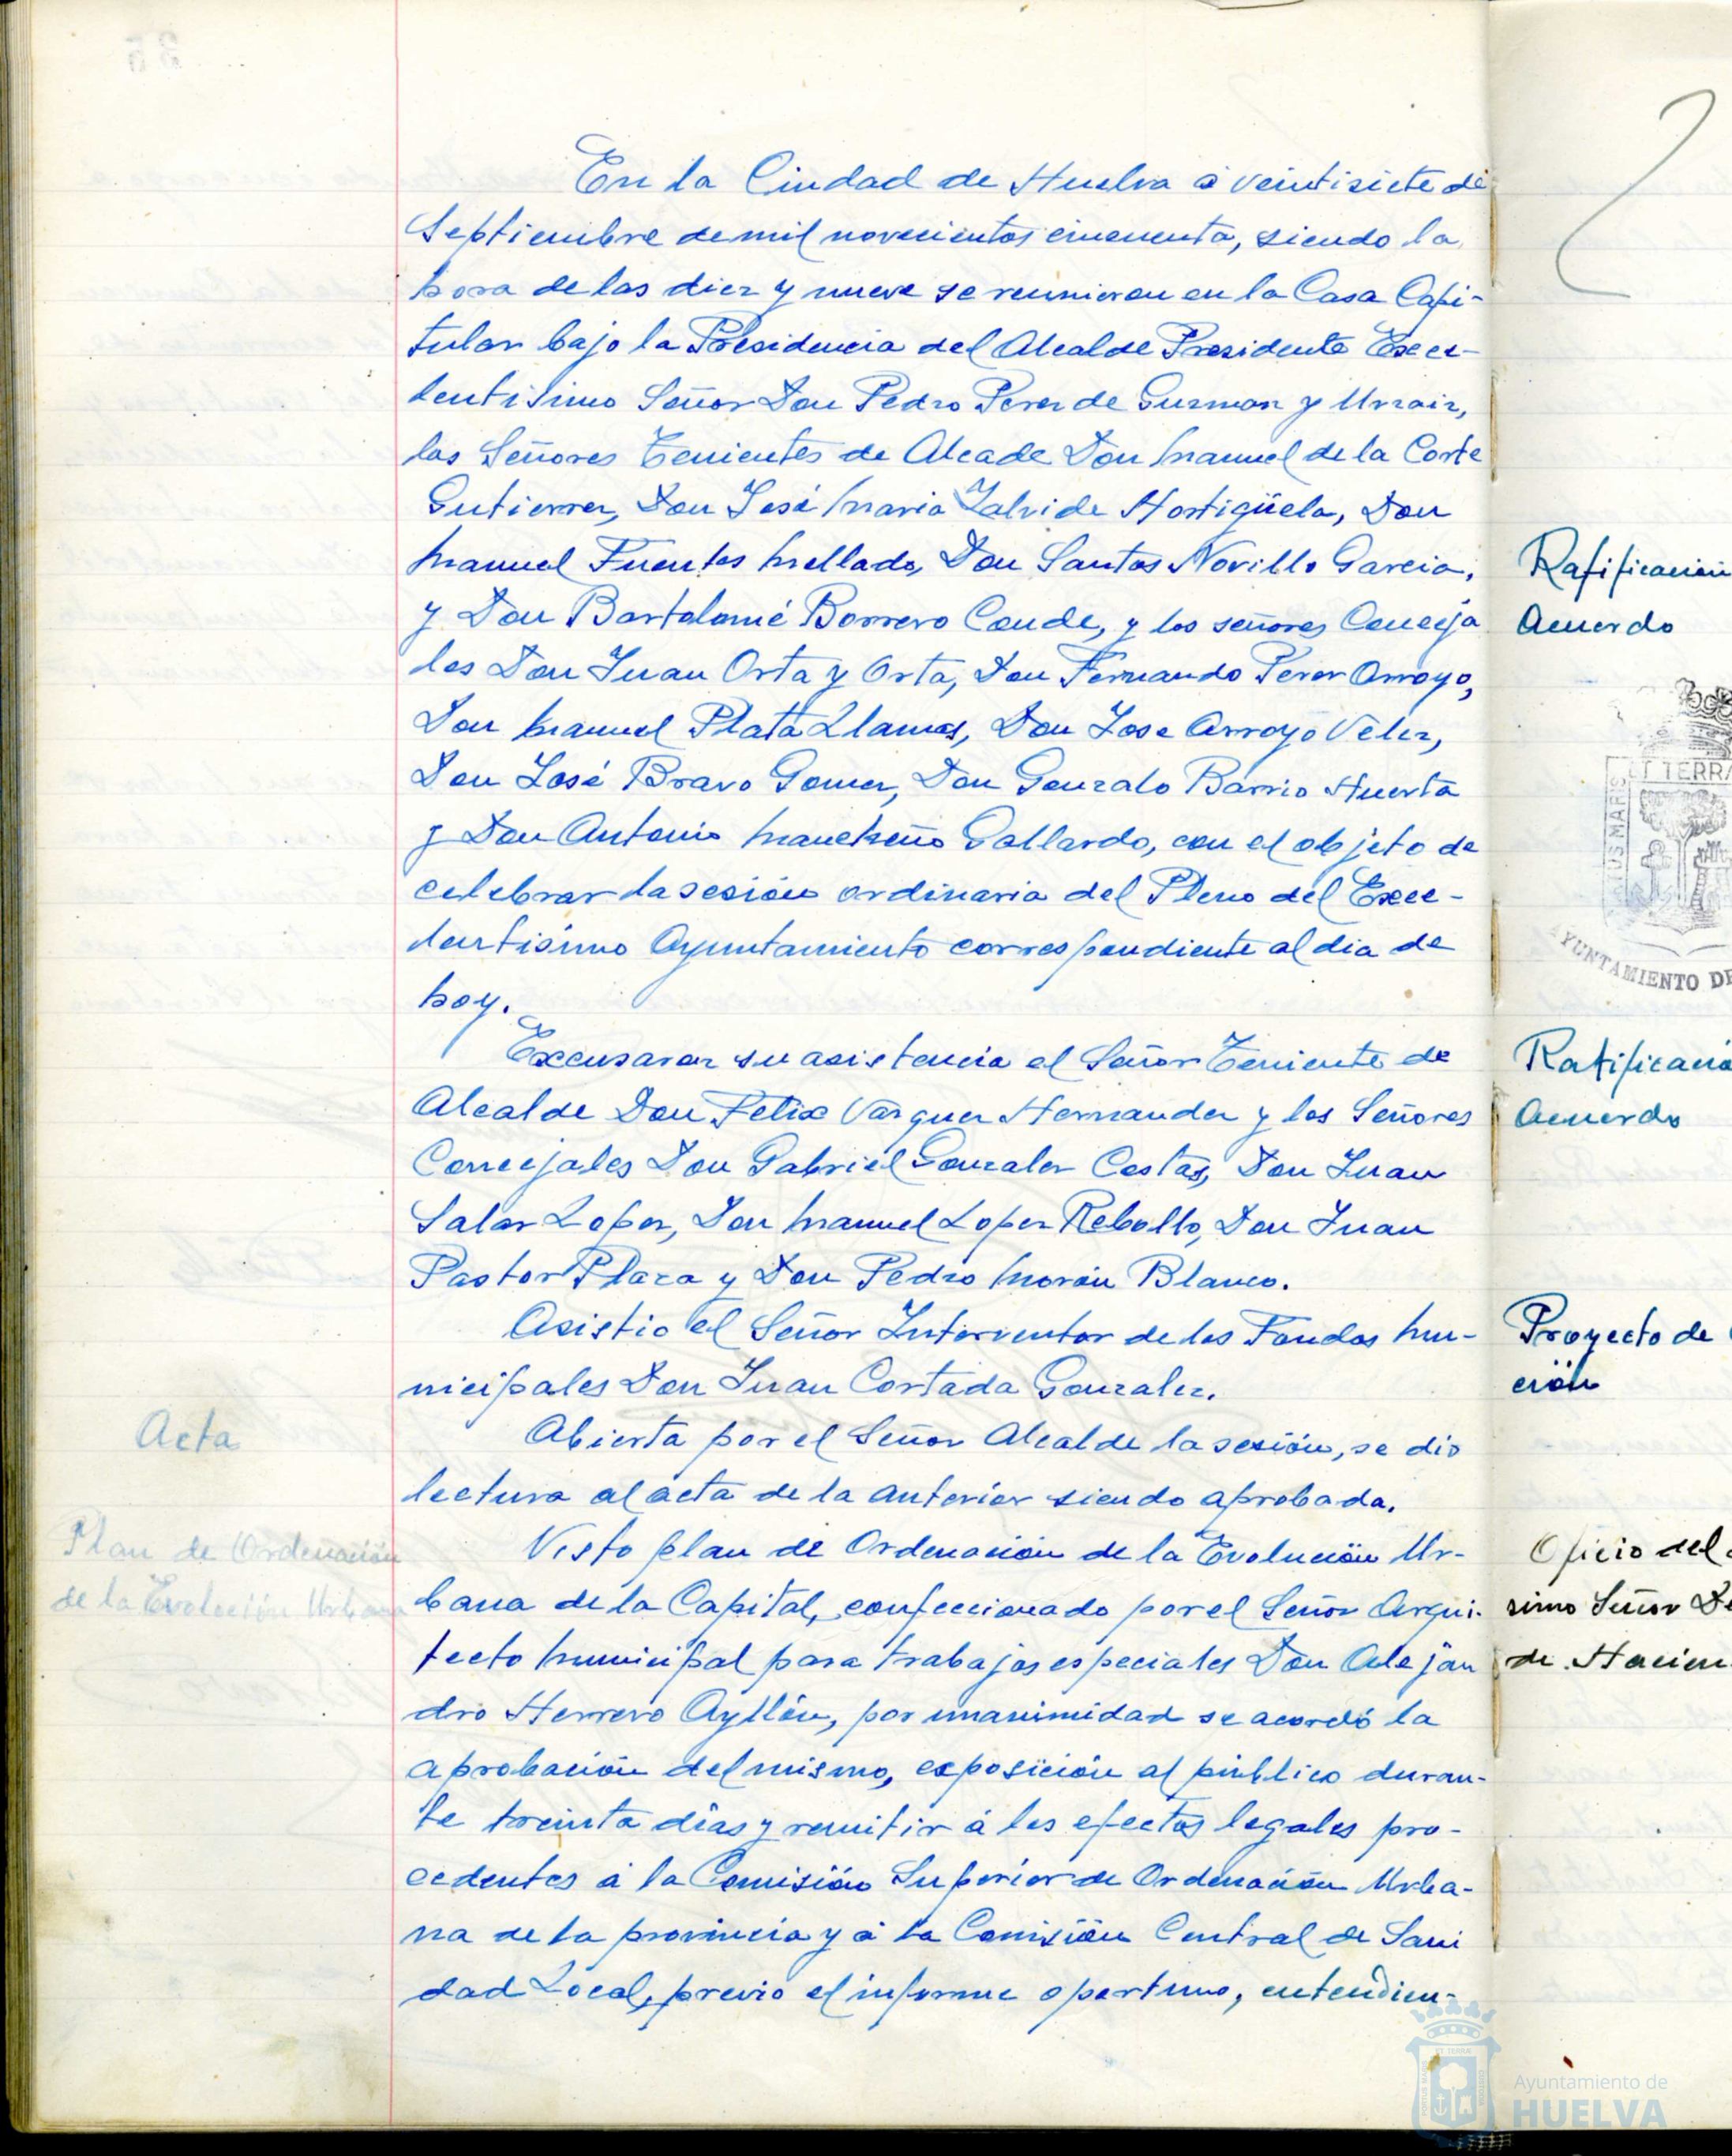 En la Ciudad de Huelva á veintisiete de
Septiembre de mil novecientos cincuenta, siendo la
hora de las diez y nueve se reunieron en la Casa Capi-
tular bajo la Presidencia del Alcalde Presidente Exce-
lentisimo Señor Don Pedro Perez de Guzman y Urzaiz,
los Señores Tenientes de Alcade Don Manuel de la Corte
Gutierrez, Don José Maria Zalvide Hortigüela, Don
Manuel Fuentes Mellado, Don Santos Novillo Garcia,
y Don Bartolomé Borrero Conde, y los señores Conceja
les Don Juan Orta y Orta, Don Fernando Perez Arroyo,
Don Manuel Plata Llamas, Don Jose Arroyo Velez,
Don José Bravo Gomez, Don Gonzalo Barrio Huerta
y Don Antonio Mancheño Gallardo, con el objeto de
celebrar la sesión ordinaria del Pleno del Exce-
lentisimo Ayuntamiento correspondiente al dia de
hoy.
Excusaron su asistencia el Señor Teniente de
Alcalde Don Felix Vázquez Hernandez y los Señores
Concejales Don Gabriel Gonzalez Costas, Don Juan
Salas Lopez, Don Manuel Lopez Rebollo, Don Juan
Pastor Plaza y Don Pedro Morón Blanco.
Asistio el Señor Interventor de los Fondos Mu-
nicipales Don Juan Cortada Gonzalez.
Acta
Abierta por el Señor Alcalde la sesión, se dio
lectura al acta de la anterior siendo aprobada.
Plan de Ordenación
de la Evolución Urbana
Visto plan de Ordenación de la Evolución Ur-
bana de la Capital, confeccionado por el Señor Arqui-
tecto Municipal para trabajos especiales Don Alejan
dro Herrero Ayllón, por unanimidad se acordó la
aprobación del mismo, exposición al público duran-
te treinta días y remitir á los efectos legales pro-
cedentes á la Comisión Superior de Ordenación Urba-
na de la provincia y á la Comisión Central de Sani
dad Local, previo el informe oportuno, entendien-
Ratificación
Acuerdo
ET TERRA
AYUNTAMIENTO DE
Ratificació
Acuerdo
Proyecto de
ción
Oficio del
simo Señor De
de Hacien
Ayuntamiento de
HUELVA